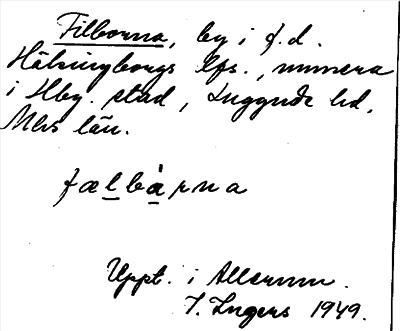 Filborna, by i f.d.
Hälsingborgs lfs., numera
i Hbg. stad, Luggude hd,
Mhs län.
fælbårna
Uppt. i Allerum.
I. Ingers 1949.